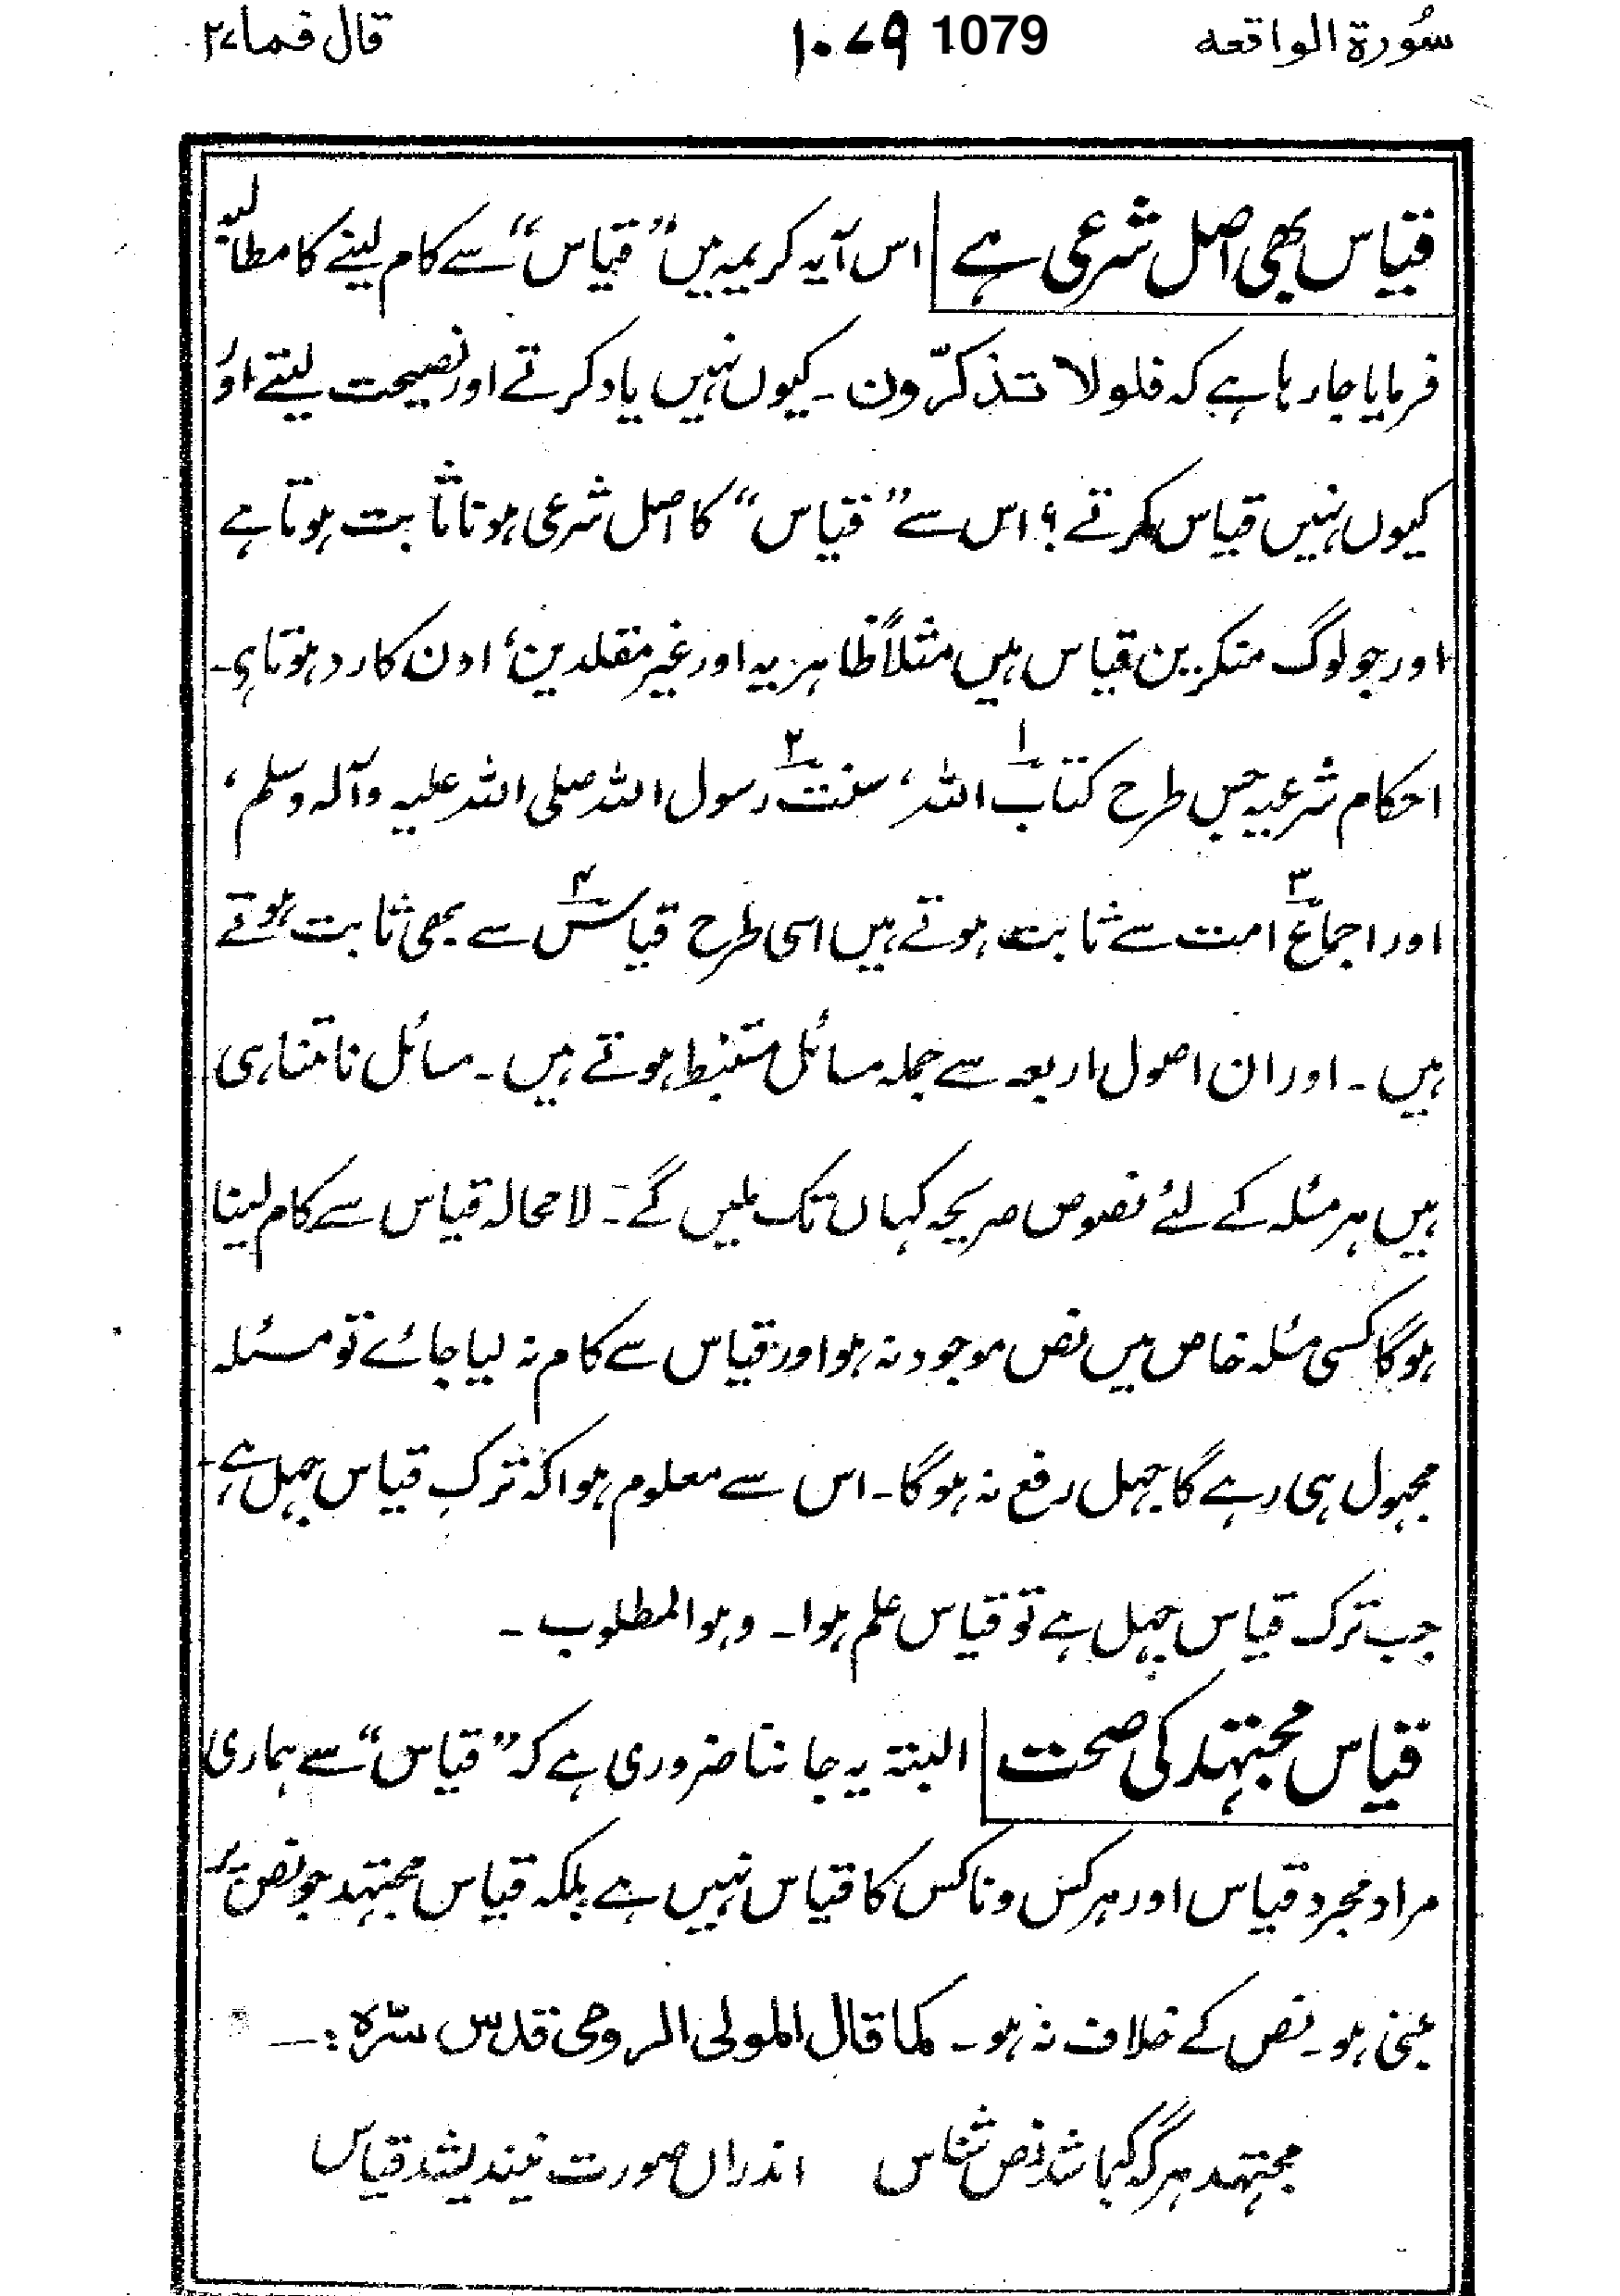 سُورۃ الواقعه ۱۰۷۹ 1079 قال فما ۲۷
قیاس بھی اصل شرعی ہے اس آیہ کریمہ میں "قیاس" سے کام لینے کا مطالبہ
فرمایا جارہا ہے کہ فلولا تذکّرون ۔ کیوں نہیں یاد کرتے اور نصیحت لیتے اور
کیوں نہیں قیاس کرتے ؟ اس سے "قیاس" کا اصل شرعی ہونا ثابت ہوتا ہے
اور جو لوگ منکرین قیاس ہیں مثلاً ظاہریہ اور غیر مقلدین، اون کا رد ہوتا ہی۔
احکام شرعیہ جس طرح کتاب۱ اللہ، سنت۲ رسول اللہ صلی اللہ علیہ وآلہ وسلم،
اور اجماع۳ امت سے ثابت ہوتے ہیں اسی طرح قیاس۴ سے بھی ثابت ہوتے
ہیں ۔ اور ان اصول اربعہ سے جملہ مسائل مستنبط ہوتے ہیں ۔ مسائل نا متناہی
ہیں ہر مسئلہ کے لئے نصوص صریحہ کہاں تک ملیں گے ۔ لا محالہ قیاس سے کام لینا
ہوگا کسی مسئلہ خاص میں نص موجود نہ ہو اور قیاس سے کام نہ لیا جائے تو مسئلہ
مجہول ہی رہے گا جہل رفع نہ ہوگا ۔ اس سے معلوم ہوا کہ ترک قیاس جہل ہے ۔
جب ترک قیاس جہل ہے تو قیاس علم ہوا ۔ وہو المطلوب ۔
قیاس مجتہد کی صحت البتہ یہ جاننا ضروری ہے کہ "قیاس" سے ہماری
مراد مجرد قیاس اور ہرکس وناکس کا قیاس نہیں ہے بلکہ قیاس مجتہد جو نص پر
مبنی ہو ۔ نص کے خلاف نہ ہو ۔ کما قال المولی الرومی قدس سرّہ :۔
مجتہد ہر گہ کہ باشد نص شناس اندراں صورت نیندیشد قیاس